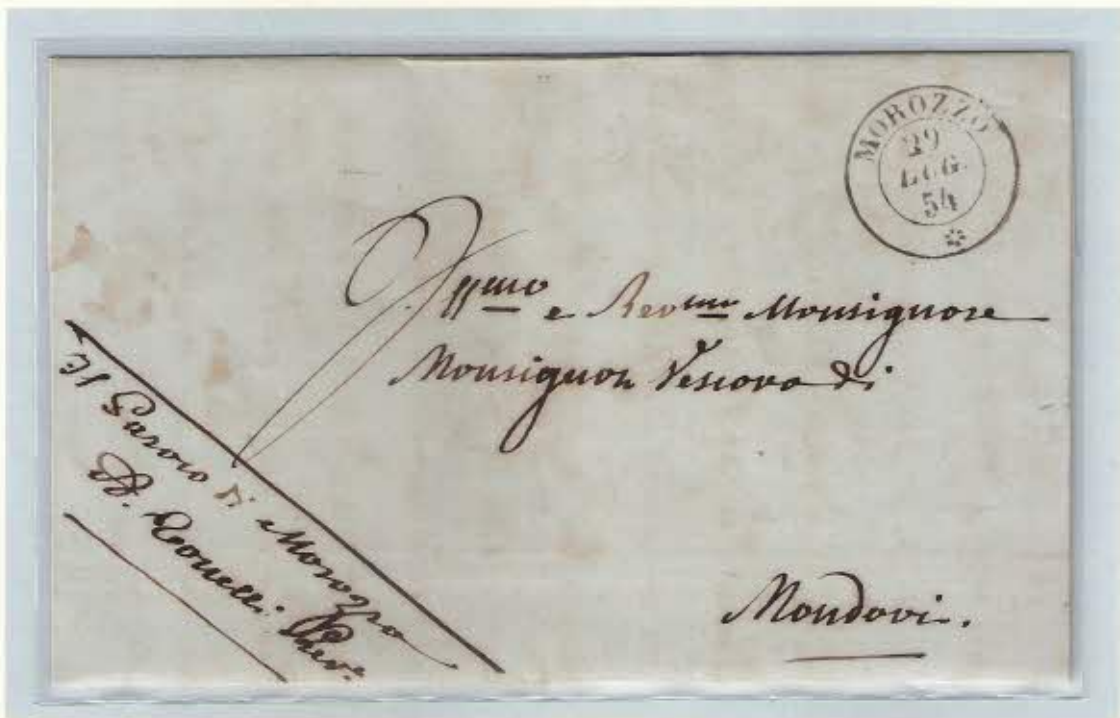 MOROZZO
29
LUG.
54
Ill.mo e Rev.mo Monsignore
Monsignor Vescovo di
Mondovì.
Il Parroco di Morozzo
D. Tonelli Prev.e